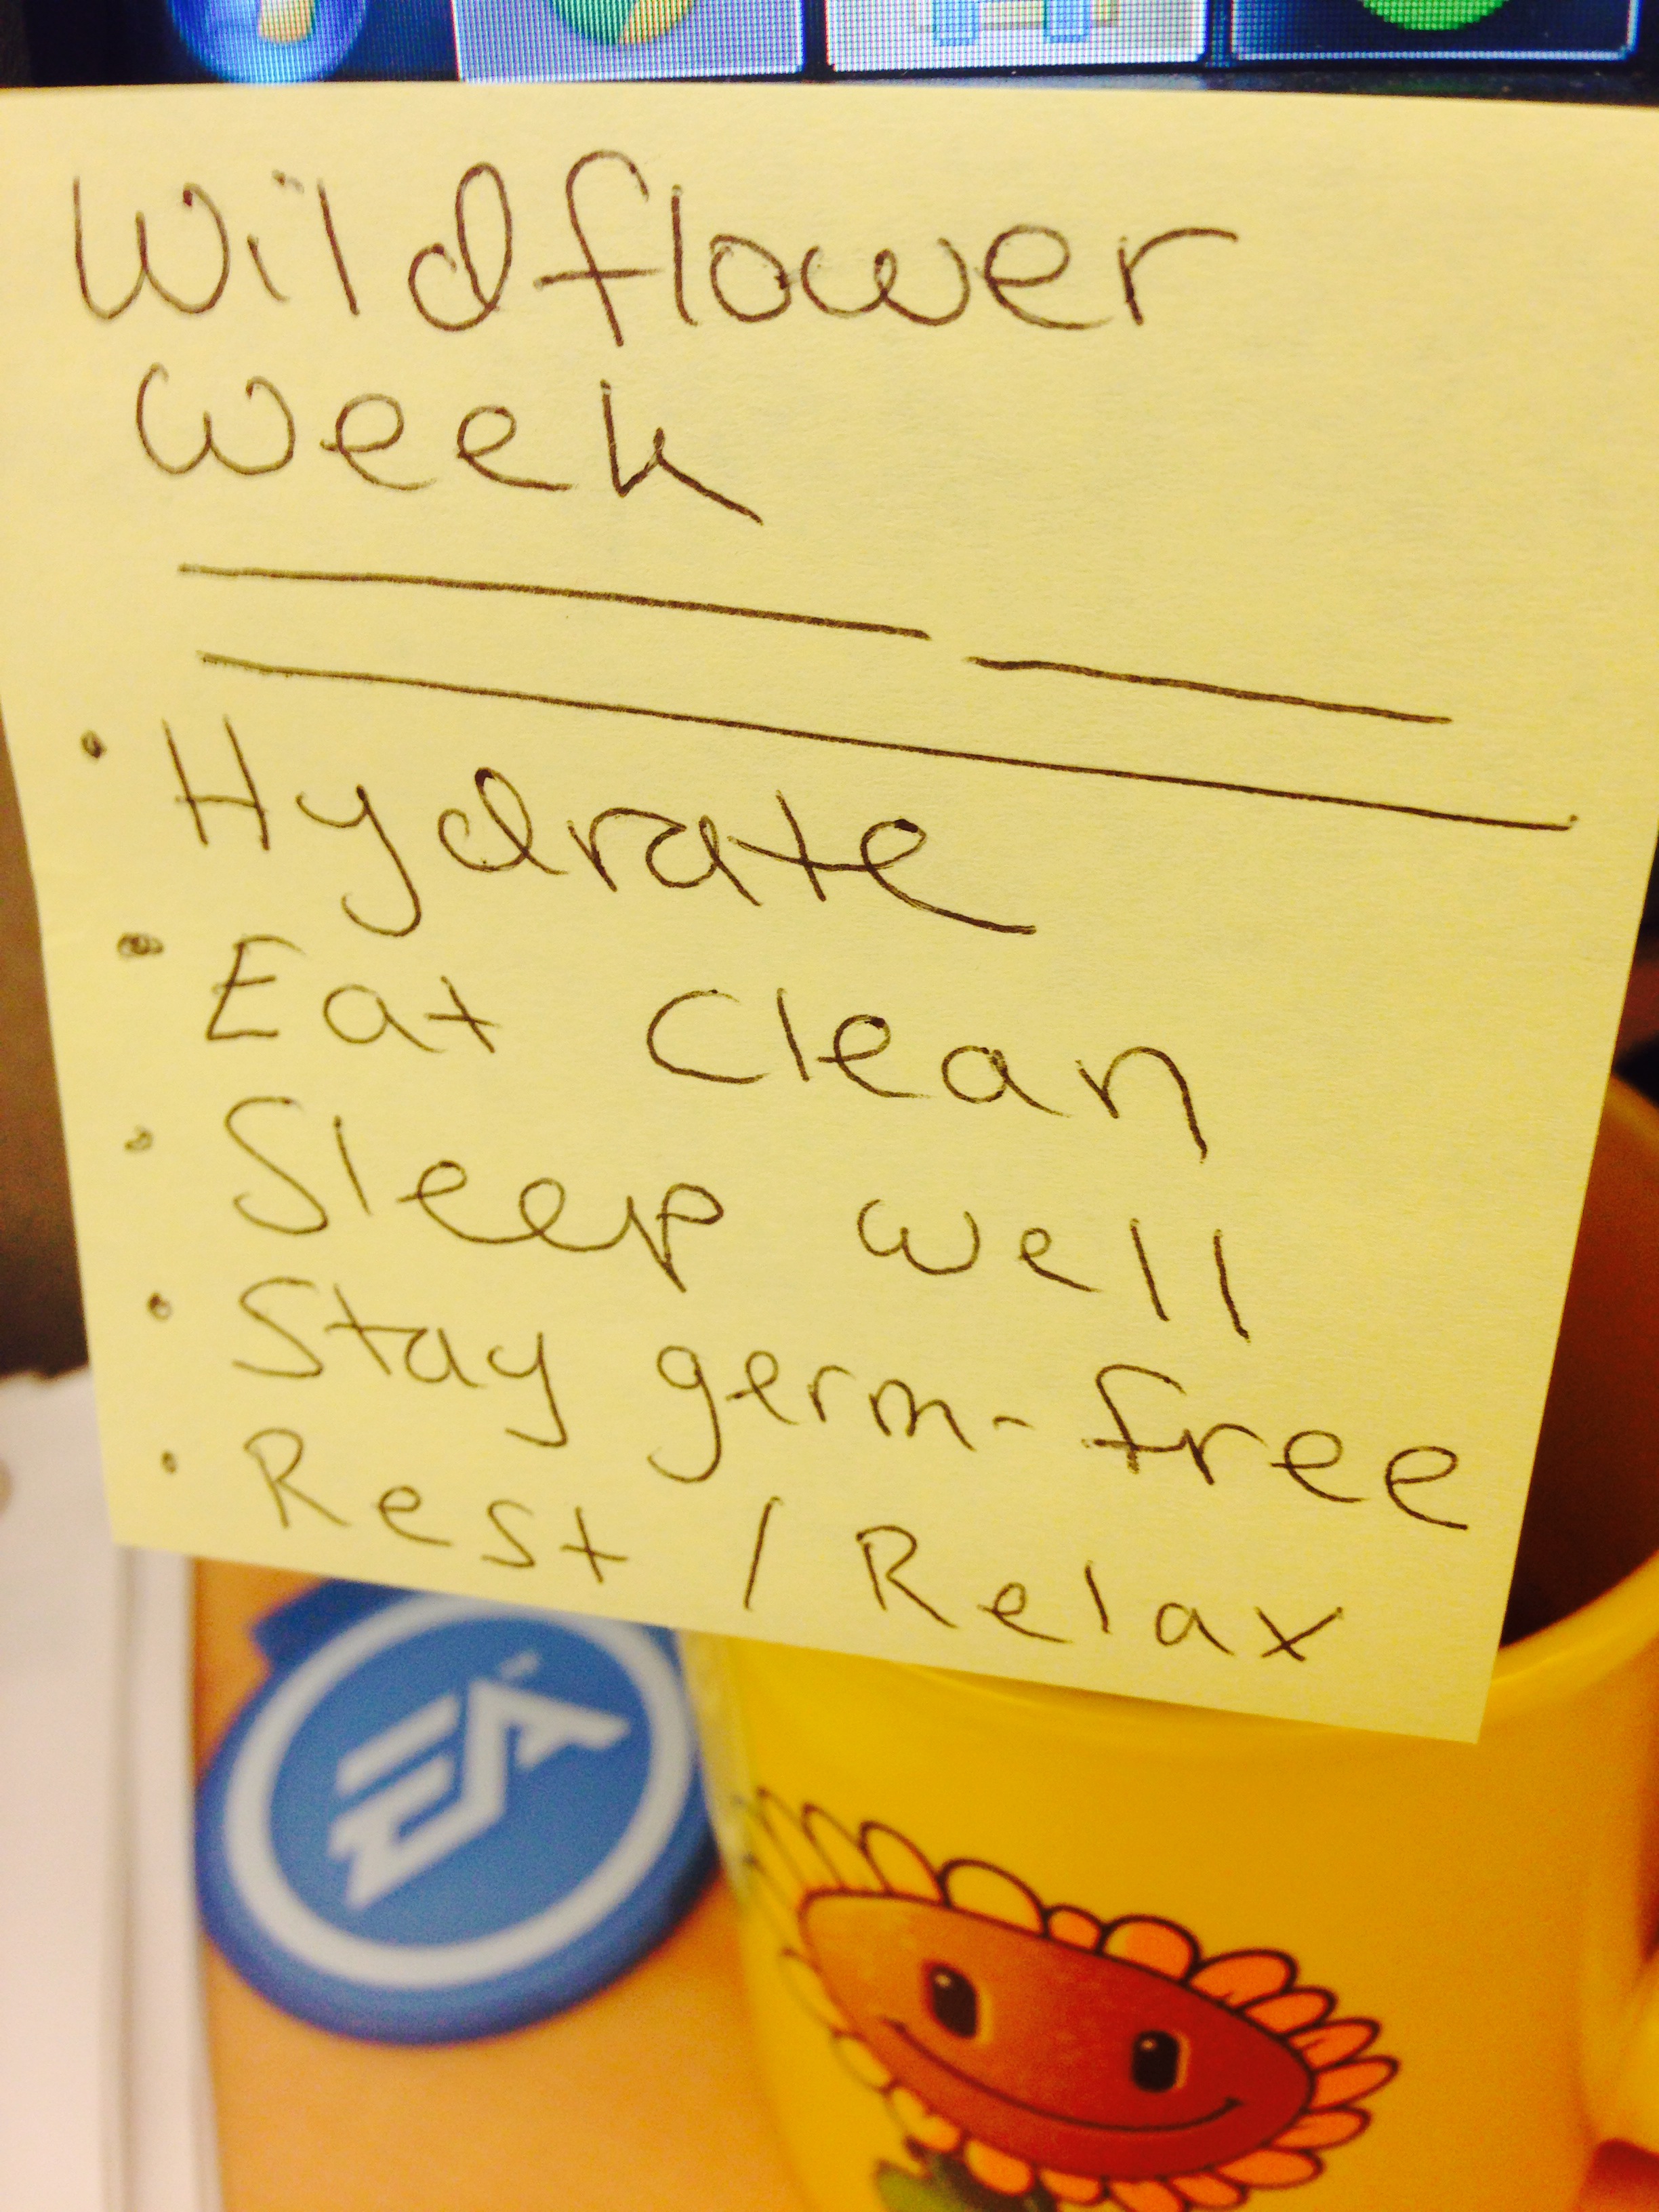 Wildflower
Week
• Hydrate
• Eat Clean
• Sleep well
• Stay germ-free
• Rest / Relax
EA